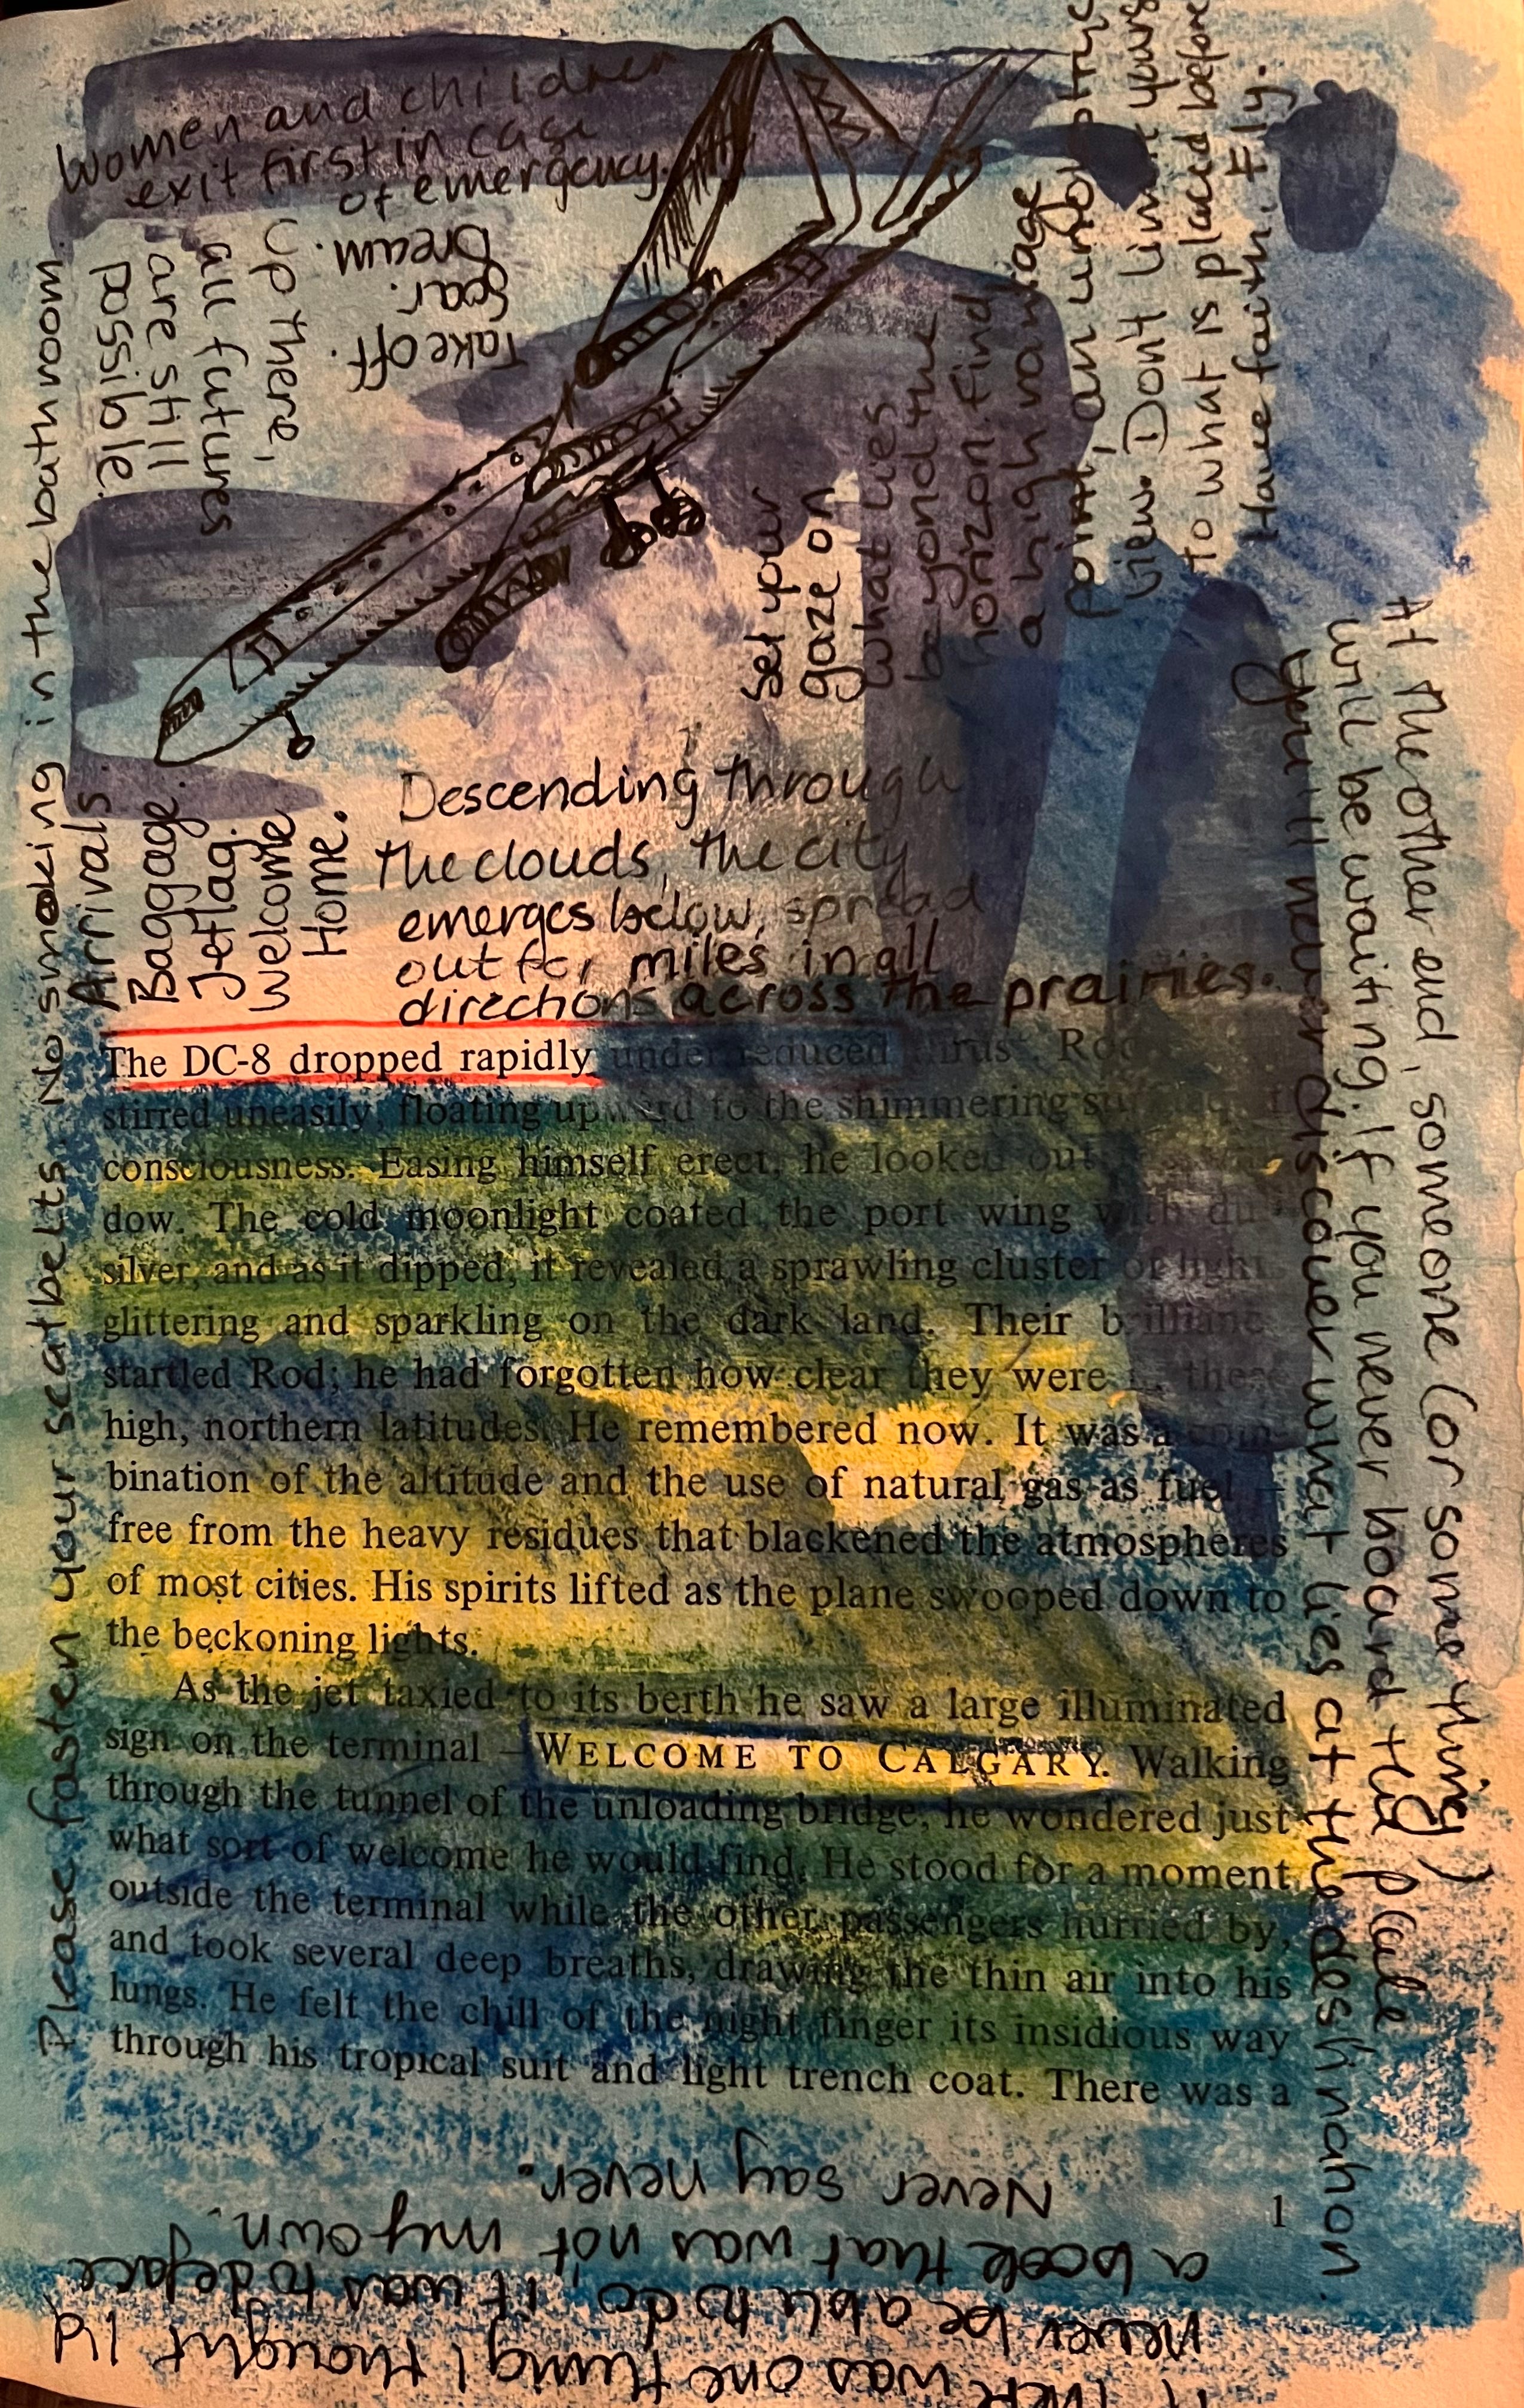 Women and children
exit first in case
of emergency.
Take off.
Soar.
Dream.
Up there,
all futures
are still
possible.
Set your
gaze on
what lies
beyond the
horizon. Find
a high vantage
point, an
view. Don't limit yours
to what is placed before
Have faith. Fly.
Please fasten your seatbelts. No smoking in the bathroom.
Arrivals.
Baggage.
Jetlag.
Welcome
Home.
Descending through
the clouds, the city
emerges below, spread
out for miles in all
directions across the prairies.
At the other end, someone (or something)
will be waiting. If you never board this plane
you'll never discover what lies at the destination.
The DC-8 dropped rapidly under reduced
stirred uneasily, floating upward to the shimmering
consciousness. Easing himself erect, he looked out
dow. The cold moonlight coated the port wing with
silver, and as it dipped, it revealed a sprawling cluster of lights
glittering and sparkling on the dark land. Their
startled Rod; he had forgotten how clear they were in these
high, northern latitudes. He remembered now. It was a com-
bination of the altitude and the use of natural gas as fuel –
free from the heavy residues that blackened the atmospheres
of most cities. His spirits lifted as the plane swooped down to
the beckoning lights.
As the jet taxied to its berth he saw a large illuminated
sign on the terminal – WELCOME TO CALGARY. Walking
through the tunnel of the unloading bridge, he wondered just
what sort of welcome he would find. He stood for a moment
outside the terminal while the other passengers hurried by,
and took several deep breaths, drawing the thin air into his
lungs. He felt the chill of the night finger its insidious way
through his tropical suit and light trench coat. There was a
1
If there was one thing I thought I'd
never be able to do, it was to deface
a book that was not my own.
Never say never.